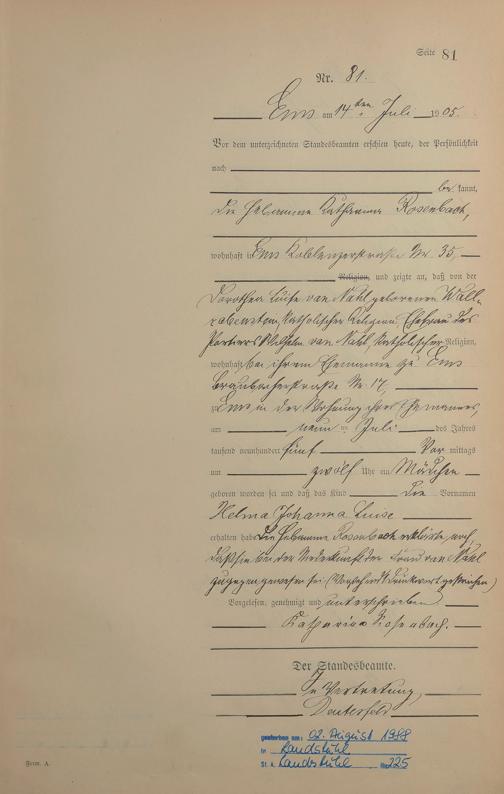 Seite 81
Nr. 81.
Ems am 14ten Juli 1905.
Vor dem unterzeichneten Standesbeamten erschien heute, der Persönlichkeit
nach
bekannt,
die Hebamme Katharina Rosenbach,
wohnhaft in Ems Koblenzerstraße Nr 35,
Religion, und zeigte an, daß von der
Dorothea Luise van Nahl geborenen Wall-
rabenstein, katholischer Religion, Ehefrau des
Portiers Wilhelm van Nahl, katholischer Religion,
wohnhaft bei ihrem Ehemanne zu Ems
Braubacherstraße Nr 17,
zu Ems in der Wohnung ihres Ehemannes,
am neunten Juli des Jahres
tausend neunhundert fünf Vormittags
um zwölf Uhr ein Mädchen
geboren worden sei und daß das Kind die Vornamen
Helma Johanna Luise
erhalten habe. Die Hebamme Rosenbach erklärte noch,
daß sie bei der Niederkunft der Frau van Nahl
zugegen gewesen sei. (Vorstehend 1 Druckwort gestrichen)
Vorgelesen, genehmigt und unterschrieben
Katharina Rosenbach.
Der Standesbeamte.
In Vertretung,
gestorben am: 02. August 1988
in Landstuhl
St. A. Landstuhl Nr. 225
Form. A.